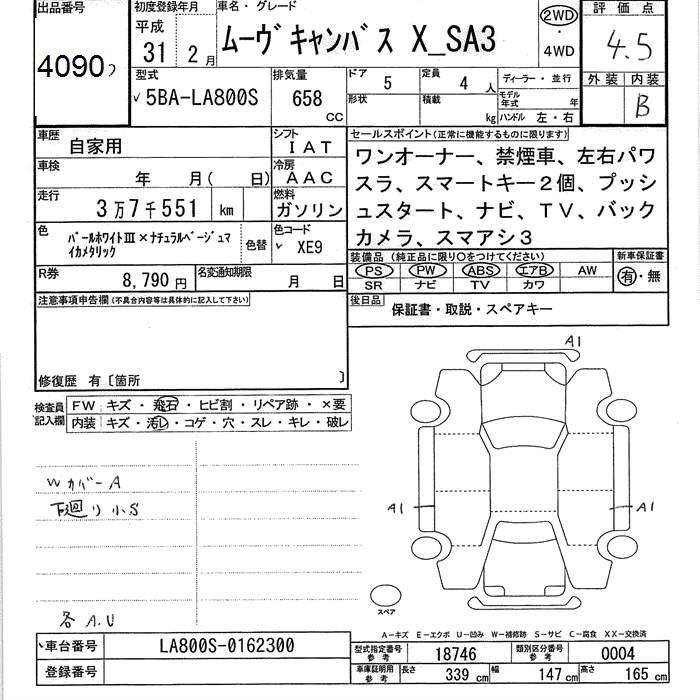 出品番号
4090
初度登録年月
平成
31 2月
車名・グレード
ムーヴキャンバス X_SA3
2WD
・
4WD
評価点
4.5
外装 内装
B
型式
5BA-LA800S
排気量
658
CC
ドア
5
定員
4 人
形状
積載
kg
ディーラー・並行
モデル年式 年
ハンドル 左・右
車歴
自家用
シフト
IAT
車検
年 月( 日)
冷房
AAC
走行
3万7千551 km
燃料
ガソリン
色
パールホワイトⅢ×ナチュラルベージュマ
イカメタリック
色替
色コード
XE9
R券
8,790円
名変通知期限
月 日
セールスポイント(正常に機能するものに限ります)
ワンオーナー、禁煙車、左右パワ
スラ、スマートキー2個、プッシ
ュスタート、ナビ、TV、バック
カメラ、スマアシ3
装備品 (純正品に限り○をつけてください)
PS PW ABS エアB AW
SR ナビ TV カワ
新車保証書
有・無
後日品
保証書・取説・スペアキー
注意事項申告欄(不具合内容等は具体的に記入して下さい)
修復歴 有〔箇所 〕
検査員
記入欄
FW キズ・飛石・ヒビ割・リペア跡・×要
内装 キズ・汚レ・コゲ・穴・スレ・キレ・破レ
WカバーA
下廻り小S
各A.U
A1
A1
A1
スペア
A-キズ E-エクボ U-凹み W-補修跡 S-サビ C-腐食 XX-交換済
車台番号
LA800S-0162300
登録番号
型式指定番号
参考
18746
類別区分番号
参考
0004
車庫証明用
参考
長さ 339 cm 幅 147 cm 高さ 165 cm